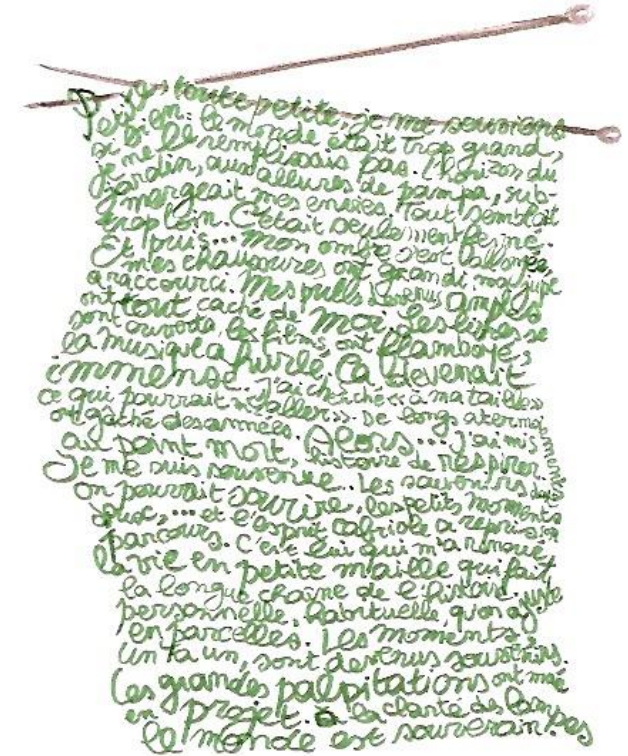 toute petite, je me souviens
si bien: le monde était trop grand,
je ne le remplissais pas. l'horizon du
jardin, aux allures de pampa, sub-
mergeait mes envies. Tout semblait
trop loin. C'était seulement fermé.
Et puis... mon ombre s'est allongée,
mes chaussures ont grandi, ma jupe
a raccourci. Mes pulls devenus amples
ont tout caché de moi. Les livres se
sont ouverts, les films ont flamboyé,
la musique a hurlé. Ça devenait
immense. J'ai cherché « à ma taille »
ce qui pourrait « aller ». De longs atermoiements
ont gâché des années. Alors... j'ai mis
au point mort, histoire de respirer.
Je me suis souvenue. Les souvenirs dont
on pourrait sourire, les petits moments
doux,... et l'esprit cabriole a repris son
parcours. C'est lui qui m'a
la vie en petite maille qui fait
la longue chaîne de l'histoire
personnelle, habituelle, qu'on ajuste
en parcelles. Les moments,
un à un, sont devenus souvenirs.
Les grandes palpitations ont mué
en projet. à la clarté des lampes
le monde est souverain.